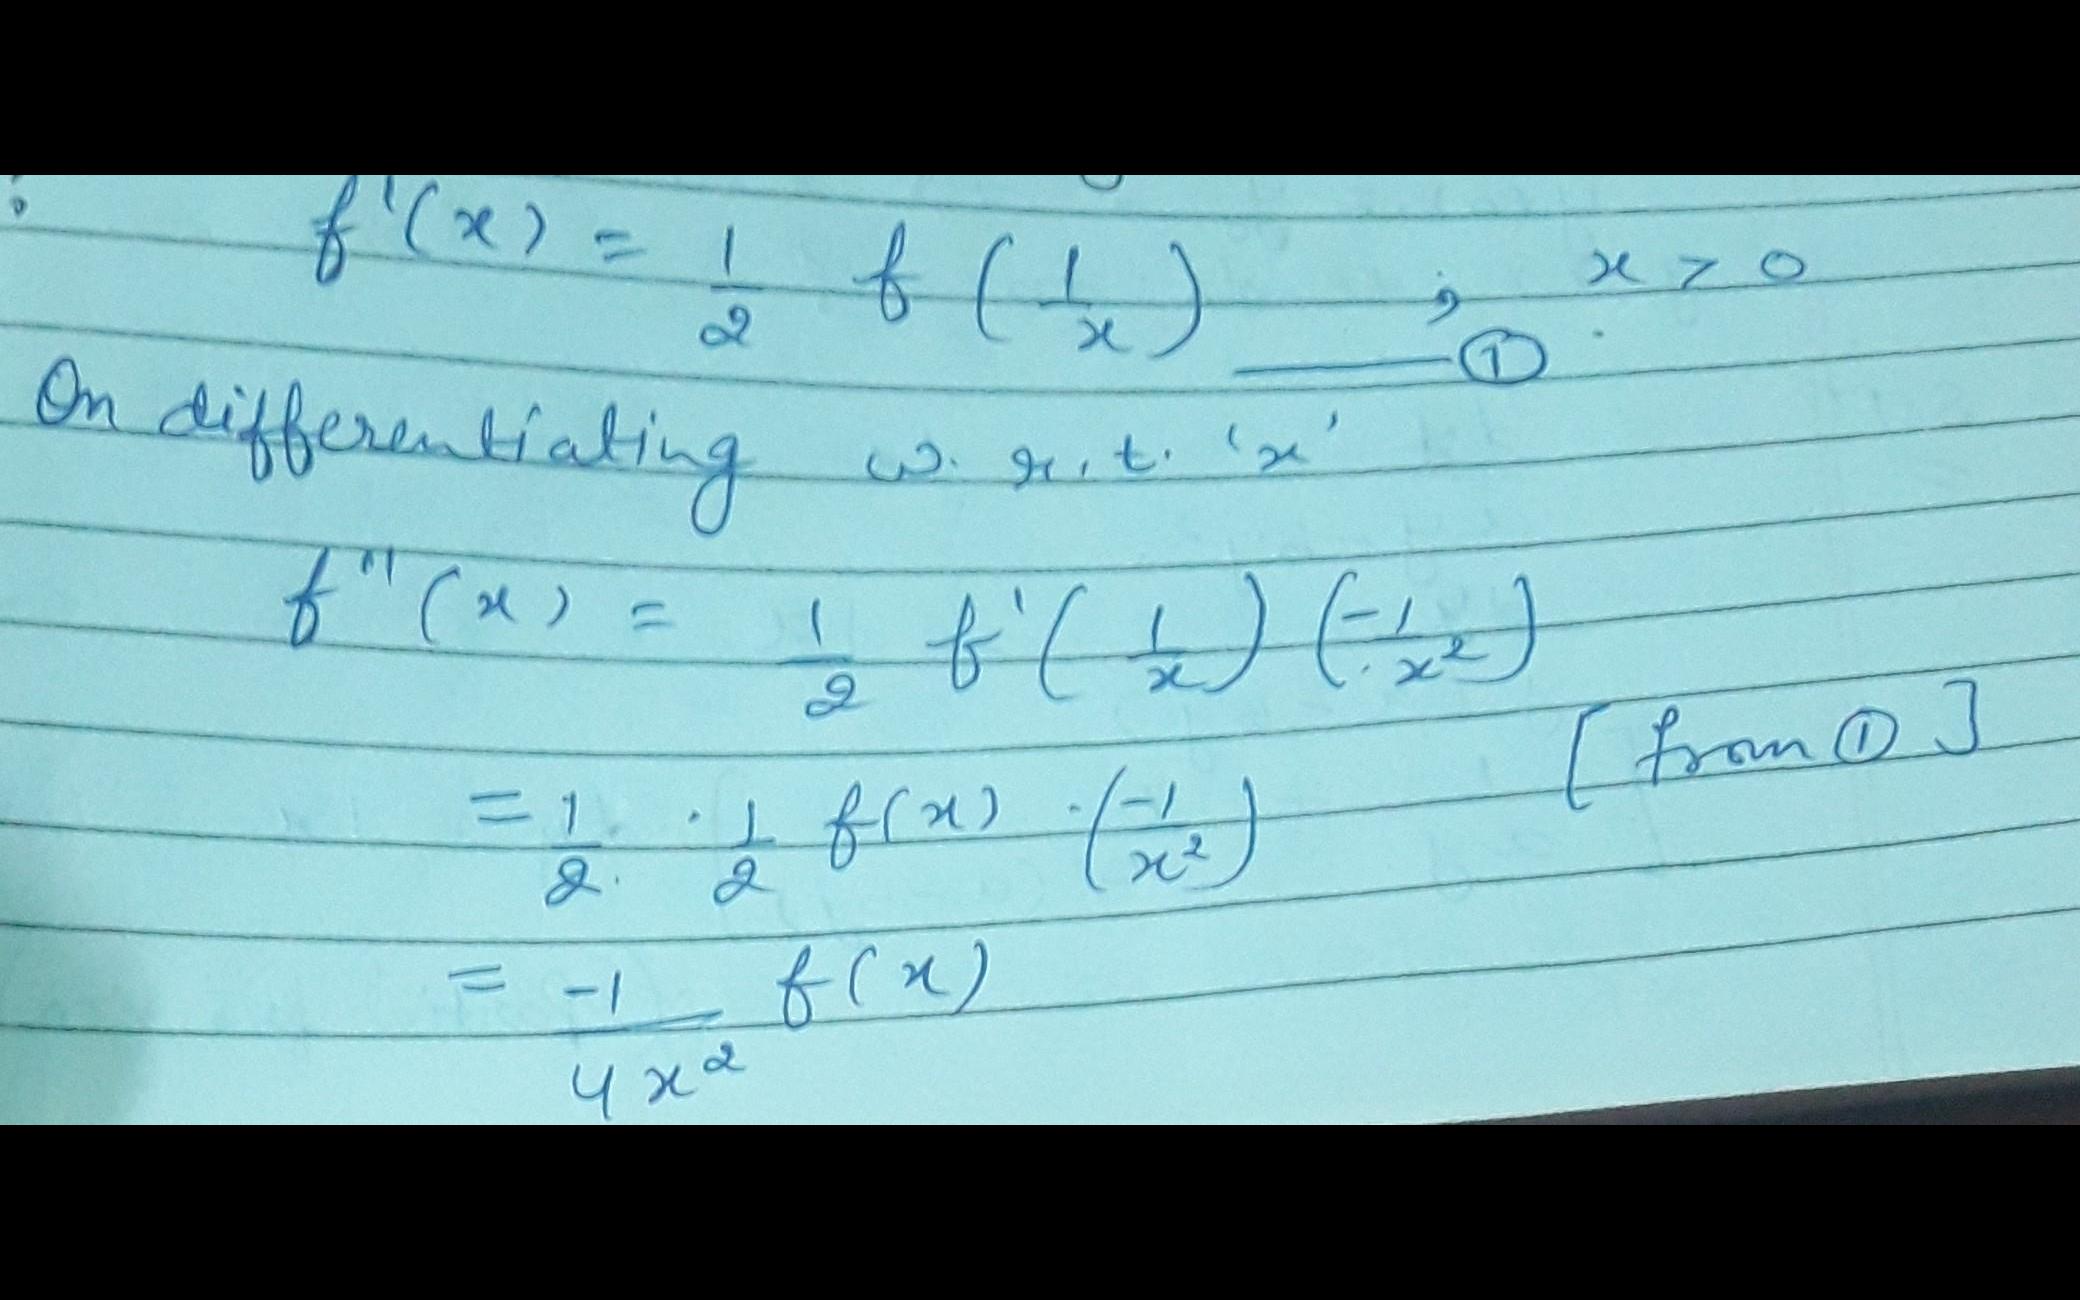 f'(x) = 1/2 f(1/x) , x > 0 —— ①
On differentiating w.r.t. 'x'
f''(x) = 1/2 f'(1/x) (-1/x²)
= 1/2 · 1/2 f(x) · (-1/x²) [from ①]
= -1/4x² f(x)